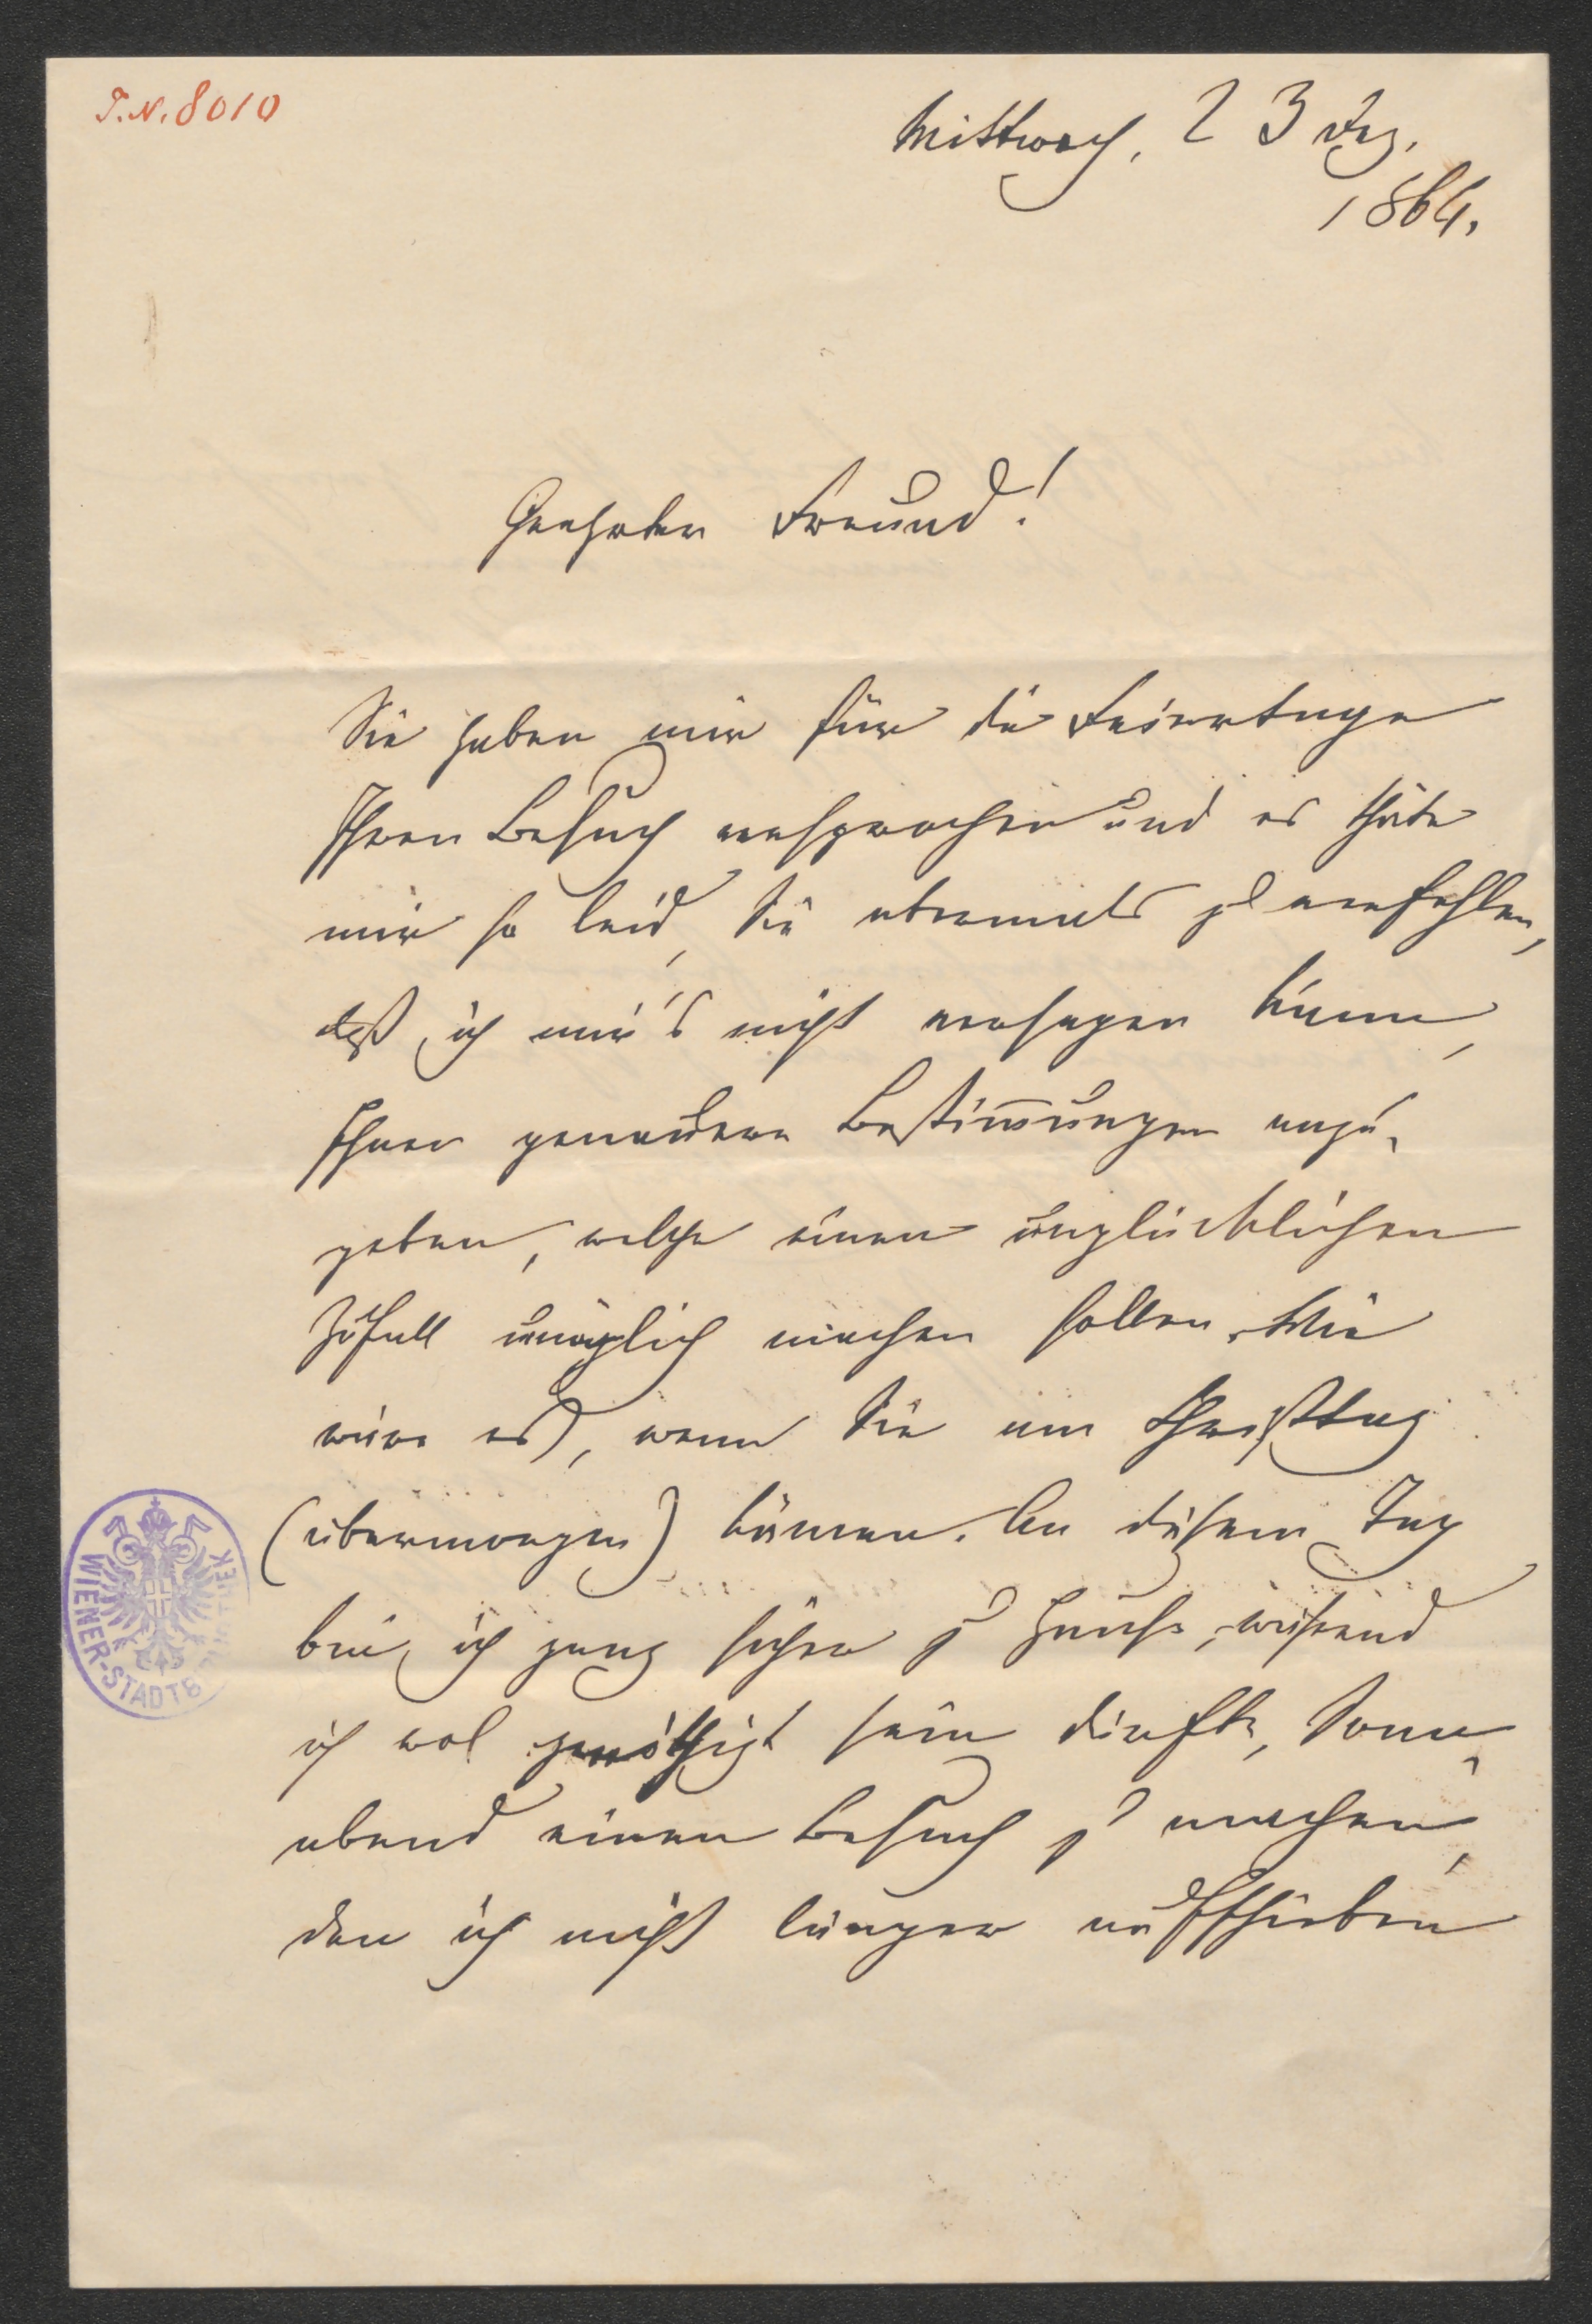 I.N. 8010
Mittwoch, 23 Dez.
1864.
Geehrter Freund!
Sie haben mir für die Feiertage
Ihren Besuch versprochen und es thäte
mir so leid, Sie abermals zu verfehlen,
daß ich mir's nicht versagen kann,
Ihnen genauere Bestimungen anzu-
geben, welche einen unglücklichen
Zufall unmöglich machen sollen. Wie
wäre es, wenn Sie am Christtag
(übermorgen) kämen. An diesem Tag
bin ich ganz sicher zu Hause, während
ich wol genöthigt sein dürfte, Sonn-
abend einen Besuch zu machen,
den ich nicht länger aufschieben
WIENER-STADTB